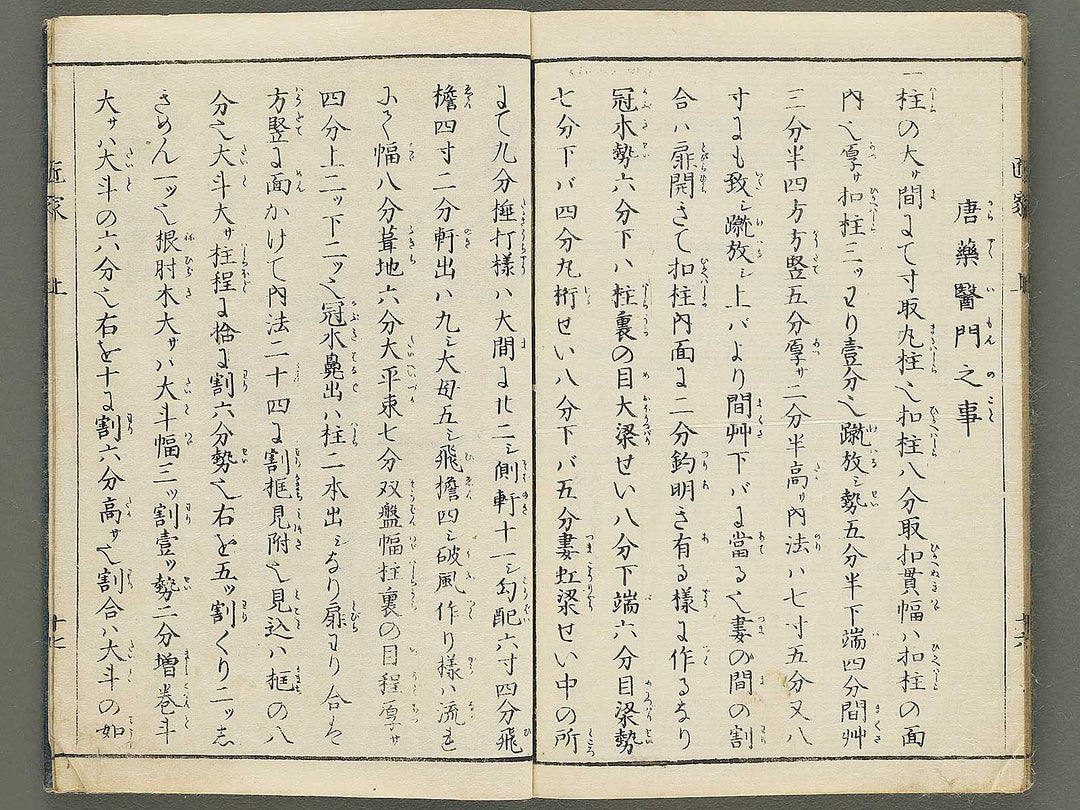 唐藥醫門之事
一柱の大サ間にて寸取丸柱也扣柱八分取扣貫幅ハ扣柱の面
内也厚サ扣柱三ッわり壹分也蹴放シ勢五分半下端四分間艸
三分半四方方竪五分厚サ二分半高サ内法ハ七寸五分又八
寸にも致シ蹴放シ上バより間艸下バに當る也妻の間の割
合ハ扉開きて扣柱内面に二分釣明き有る様に作るなり
冠木勢六分下ハ柱裏の目大梁せい八分下端六分目梁勢
七分下バ四分丸桁せい八分下バ五分妻虹梁せい中の所
にて九分捶打様ハ大間に廿二シ側軒十一シ勾配六寸四分飛
檐四寸二分軒出ハ九シ大毋五シ飛擔四シ破風作り様ハ流れ
ふく幅八分葺地六分大平束七分双盤幅柱裏の目程厚サ
四分上二ッ下二ッ也冠木鼻出ハ柱二本出シなり扉わり合は
方竪に面かけて内法二十四に割框見附也見込ハ框の八
分也大斗大サ柱程に拾に割六分勢也右を五ッ割くり二ッ志
きめん一ッ也根肘木大サハ大斗幅三ッ割壹ッ勢二分増巻斗
大サハ大斗の六分也右を十に割六分高サ也割合ハ大斗の如
匠家
上
十六
匠家
上
十七